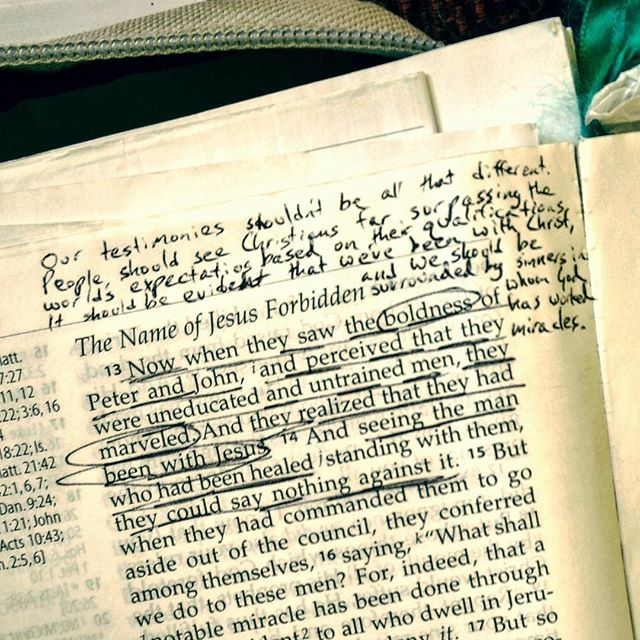 Our testimonies shouldn't be all that different.
People should see Christians far surpassing the
worlds expectations based on their qualifications,
It should be evident that we've been with Christ,
and we should be
surrounded by sinners in
whom God
has worked
miracles.
The Name of Jesus Forbidden
13 Now when they saw the boldness of
Peter and John, i and perceived that they
were uneducated and untrained men, they
marveled. And they realized that they had
been with Jesus. 14 And seeing the man
who had been healed j standing with them,
they could say nothing against it. 15 But
when they had commanded them to go
aside out of the council, they conferred
among themselves, 16 saying, k “What shall
we do to these men? For, indeed, that a
notable miracle has been done through
2 to all who dwell in Jeru-
it. 17 But so
att.
7:27
11, 12
22; 3:6, 16
8:22; Is.
att. 21:42
2:1, 6, 7;
Dan. 9:24;
1:21; John
Acts 10:43;
n. 2:5, 6]